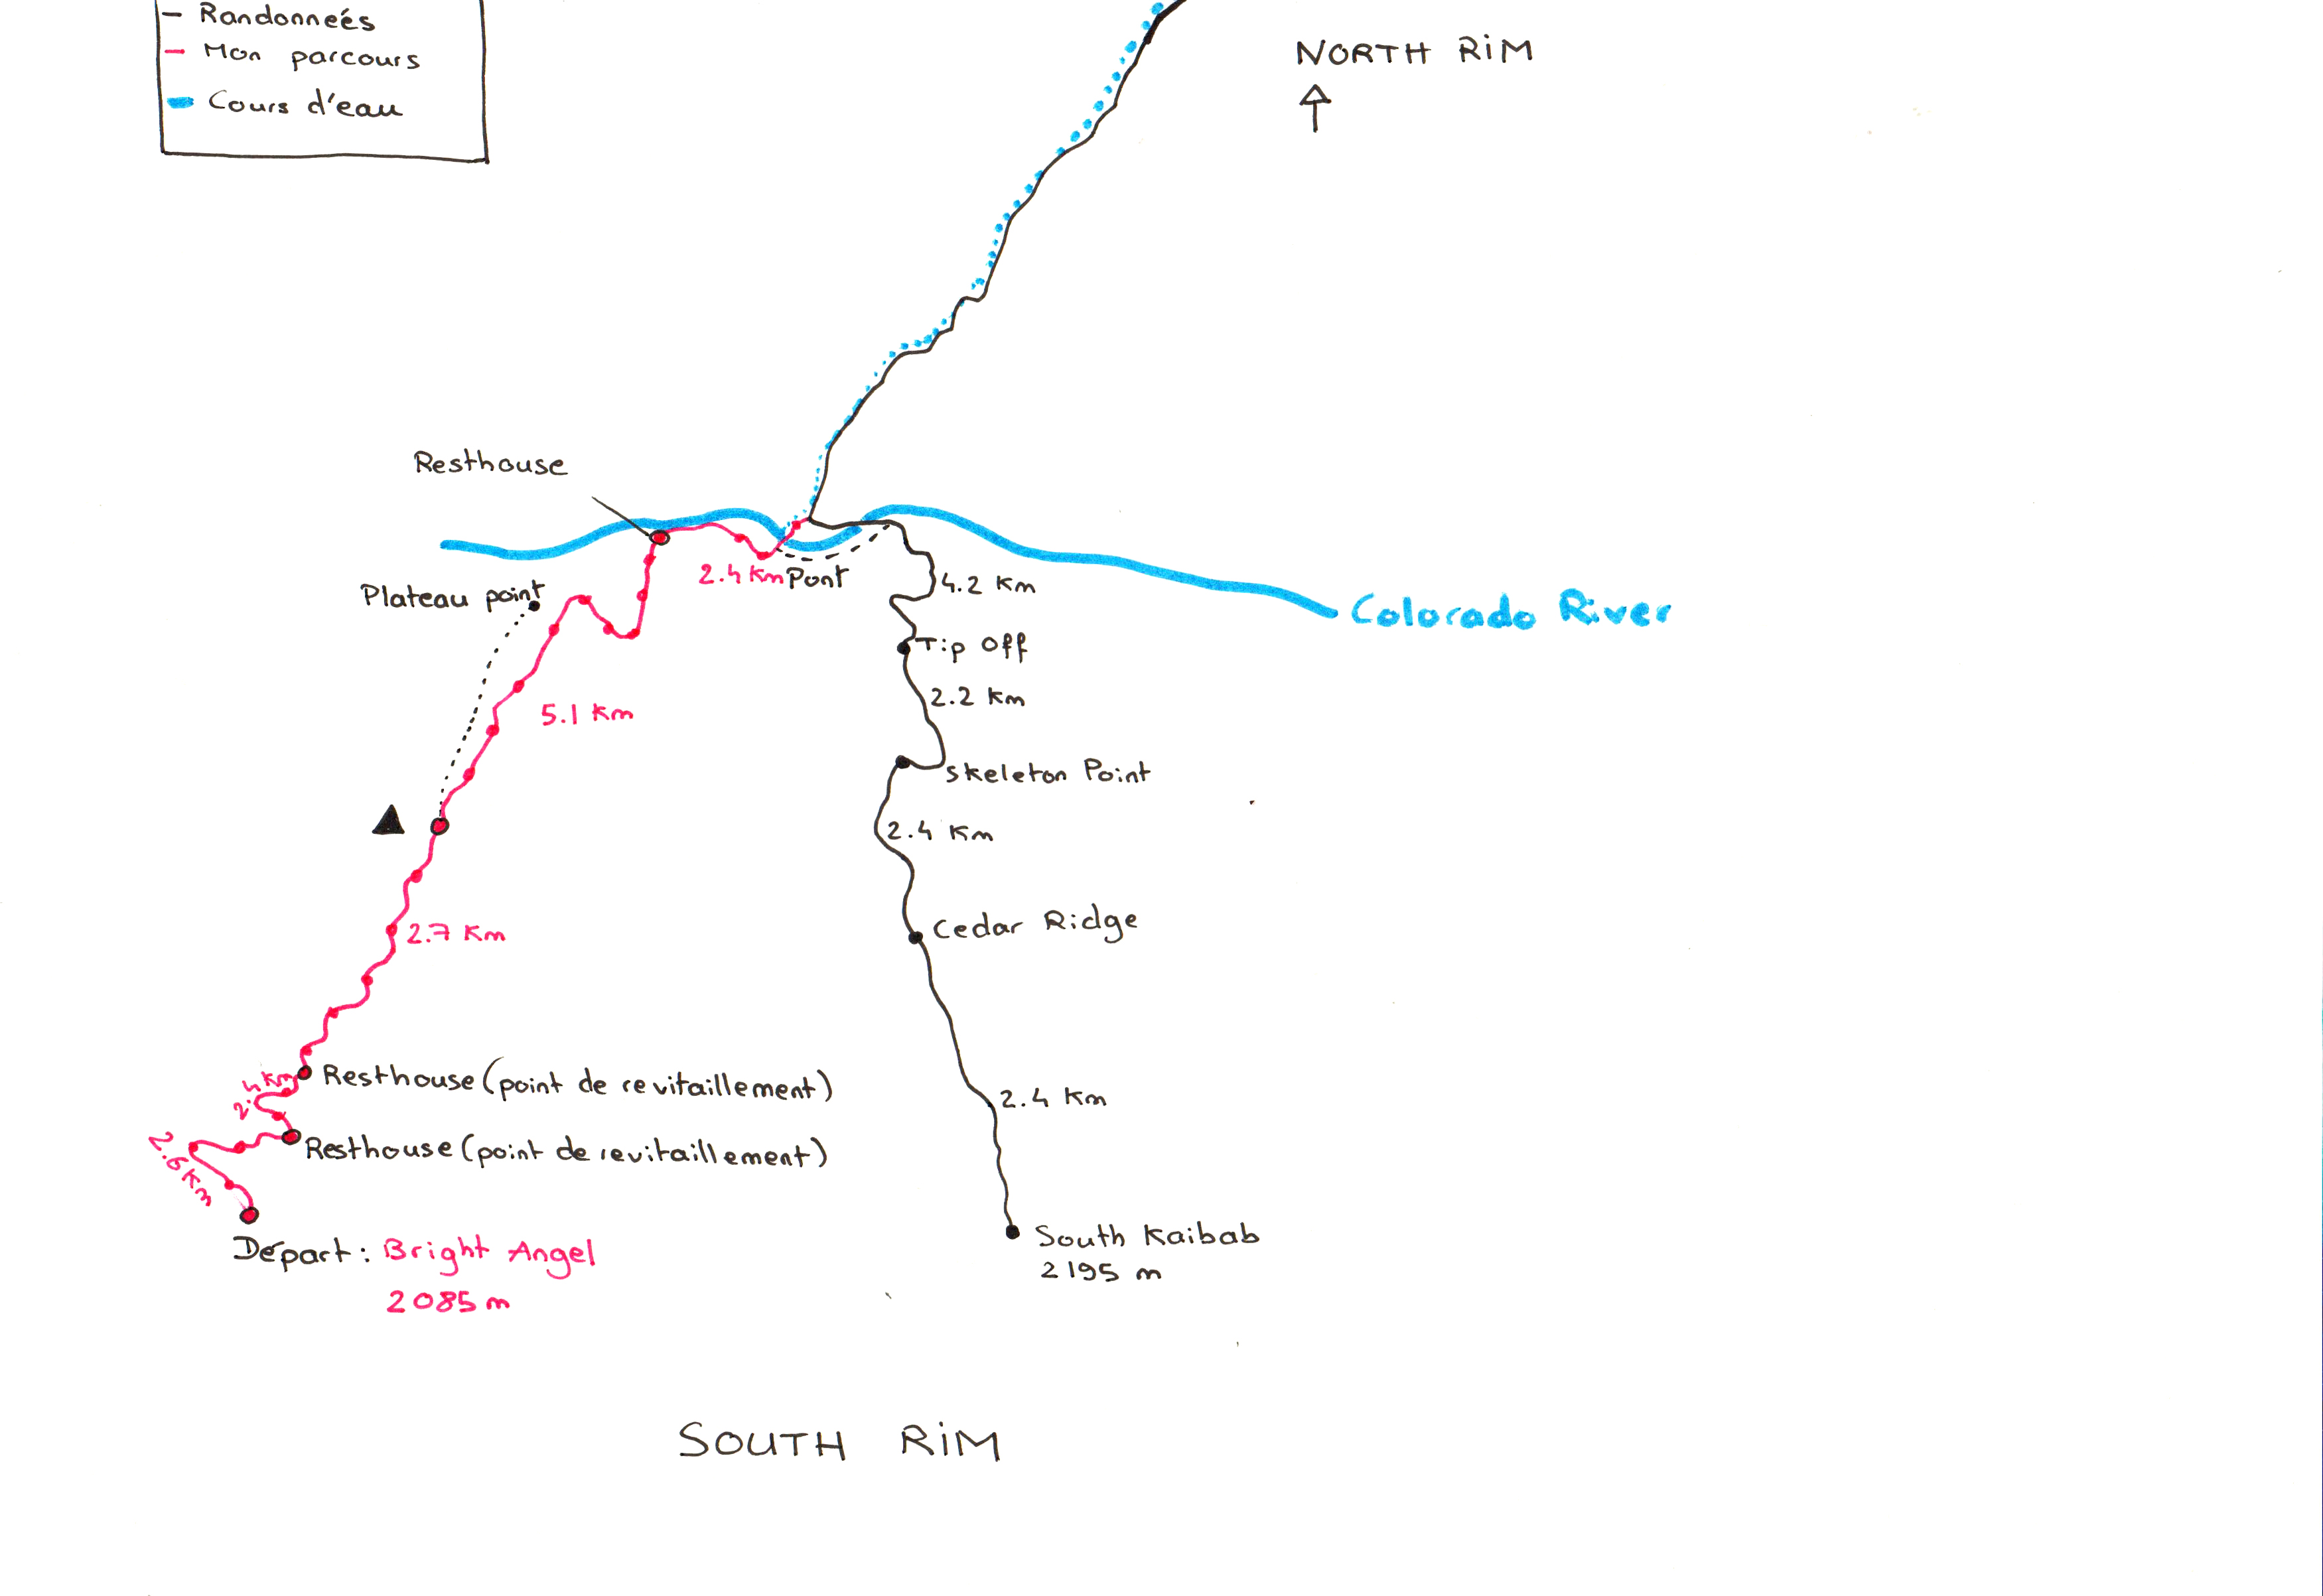 Randonneés
Mon parcours
Cours d'eau
NORTH RiM
Resthouse
2.4 Km
Pont
Plateau point
4.2 Km
Colorado River
Tip Off
2.2 Km
5.1 Km
Skeleton Point
2.4 Km
Cedar Ridge
2.7 Km
2.4 Km
Resthouse (point de revitaillement)
2.4 Km
Resthouse (point de revitaillement)
2.6 Km
Départ: Bright Angel
2085 m
South Kaibab
2195 m
SOUTH RiM